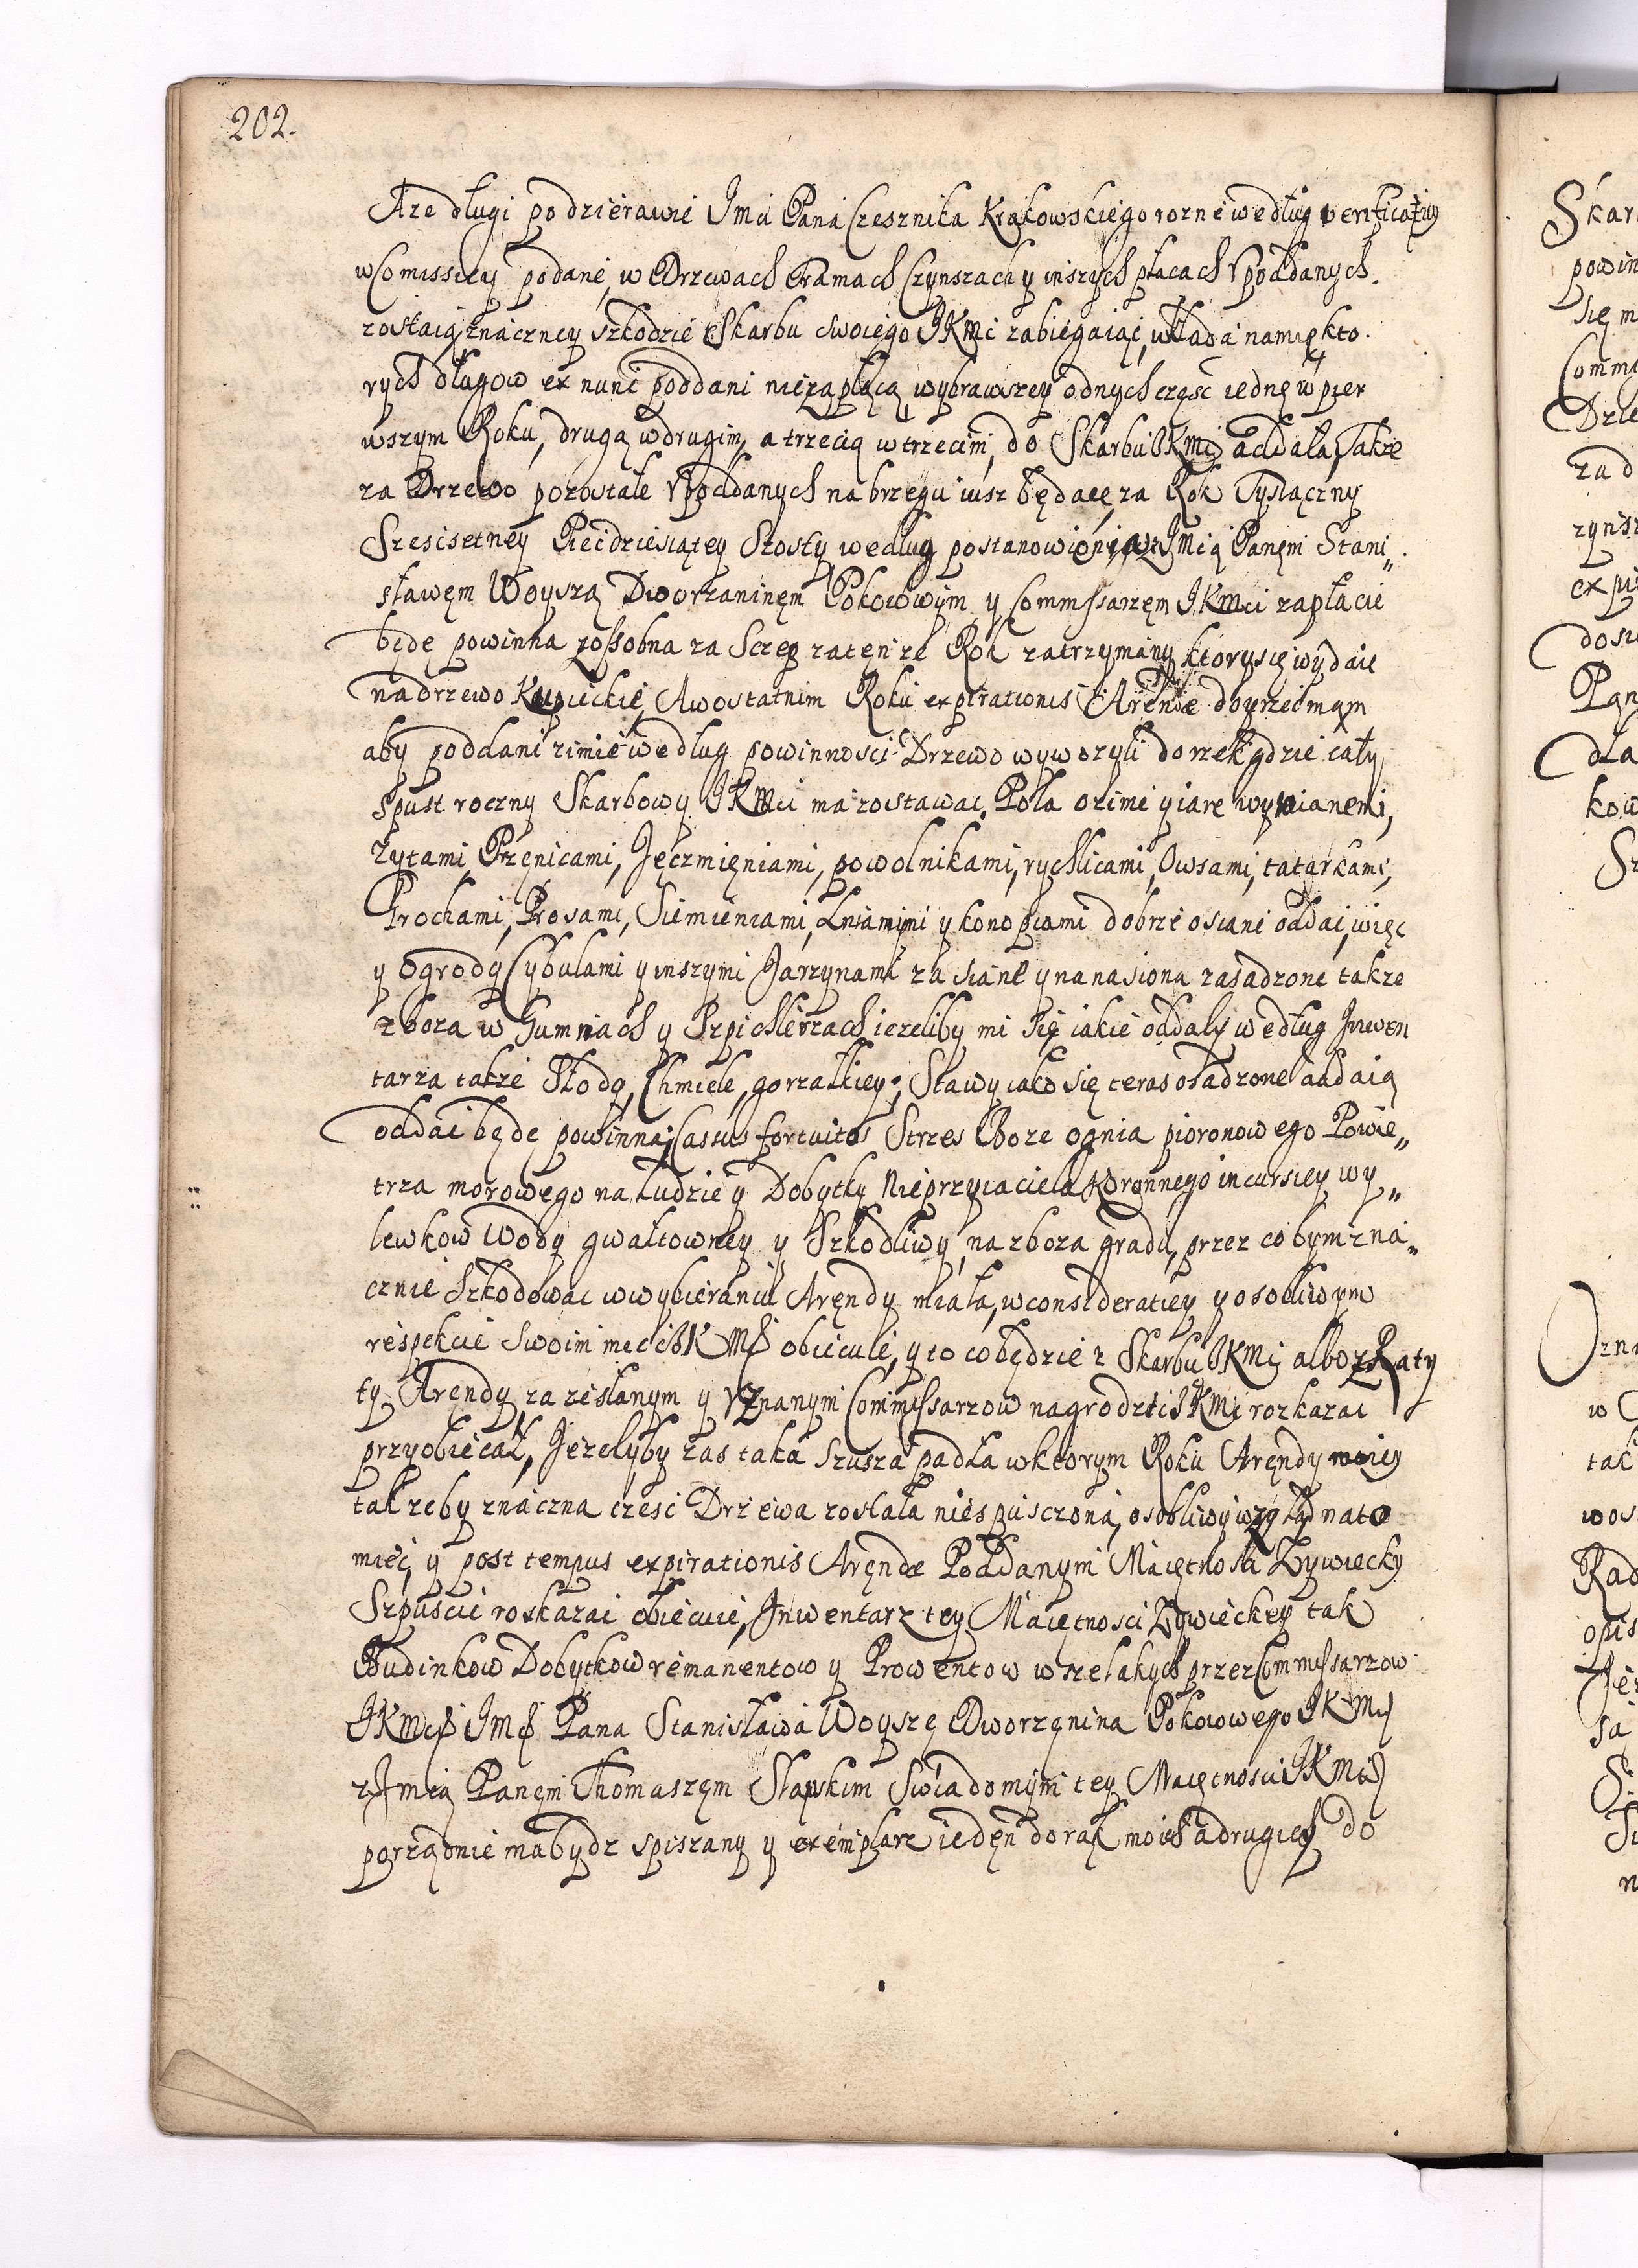 202.
A ze długi po dzierawie Jmci Pana Czesznika Krakowskiego rozne według verificatiey
w Comissiey podane, w Drzewach Tramach Czynszach y inszych płacach v poddanych
zostaią, znaczney szkodzie Skarbu swoiego JKMci zabiegaiąc, wkłada na mię kto
rych długow ex nunc poddani nie zapłacą, wybrawszey od nych częsc iednę w pier
wszym Roku, drugą w drugim, a trzecią w trzecim, do Skarbu JKMci addała, Takze
za Drzewo pozostałe v poddanych na brzegu iusz będące, za Rok Tysiączny
Szescsetney Piecdziesiątey Szosty według postanowienia z Jmcią Panęm Stani„
sławęm Woyszą Dworzaninęm Pokoiowym y Commissarzęm JKMci zapłacic
będę powinna zossobna za Szrep za tęn ze Rok zatrzymany ktory się wydaie
na drzewo Kupieckie, A w ostatnim Roku expirationis Arendæ doyrzec mąm
aby poddani zimie według powinnosci Drzewo wywozyli do rzek gdzie cały
spust roczny Skarbowy JKMci ma zostawac. Pola ozime y iare wymianemi,
Zytami, Pszęnicami, Jęczmięniami, powolnikami, rychlicami, Owsami, tatarkami,
Prochami, Prosami, Siemieniami, Lniamini y konopiami dobrze osiane oddac, więc
y Ogrody Cybulami y inszymi Jarzynami za siane y na nasiona zasadzone takze
zboza w Gumniach y Szpichlerzach iezeliby mi się iakie oddały według Inwen
tarza takze Słody, Chmiele, gorzałkiey; Stawy iako się teras osadzone addaią
oddac będę powinna; Cassus fortuitos Strzes Boze ognia pioronowego Powie„
trza morowego na Ludzie y Dobytky Nieprzyiaciela Koronnego incursiey wy„
lewkow Wody gwałtowney y Szkodliwy, na zboza gradu, przez co bym zna„
cznie Szkodowac w wybieraniu Aręndy miała, w consideratiey y osobliwym
respekcie swoim miec JKMsc obiecuie, y to co będzie z Skarbu JKMci albo z Raty
ty Arendy za zesłanym y vznanym Commissarzow nagrodzic JKMci rozkazac
przyobiecał, Jezelyby zas taka Szusza padła w ktorym Roku Aręndy moiey
tak zeby znaczna czesc Drzewa została niespusczona, osobliwy wzgląd na to
miec, y post tempus expirationis Aręndæ Poddanym Maiętnosci Zywiecky
Szpuscic roskazac obiecuie, Inwentarz tey Maiętnosci Zywieckey tak
Budinkow Dobytkow remanentow y Prowentow wszelakych przez Commissarzow
JKMsci JMsci Pana Stanisława Woyszę Dworzęnina Pokoiowego JKMci
z Jmcią Panęm Thomaszęm Słapskim Swiadomym tey Maiętnosci JKMci
porządnie ma bydz spiszany y exemplarz iedęn do rąk moich a drugiey do